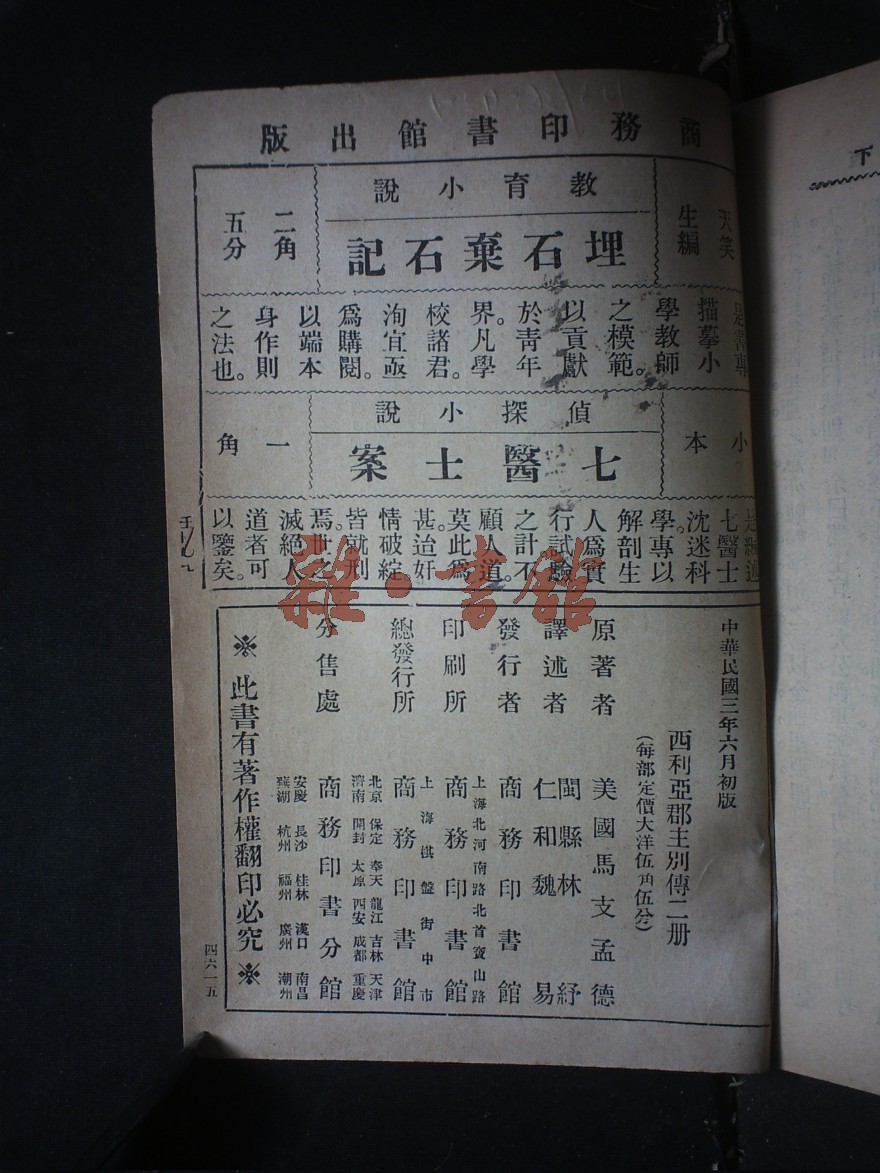 商務印書館出版
天笑
生編
教育小說
埋石棄石記
二角
五分
是書專
描摹小
學教師
之模範。
以貢獻
於青年
界。凡學
校諸君。
洵宜亟
爲購閱。
以端本
身作則
之法也。
小本
偵探小說
七醫士案
一角
七醫士
沈迷科
學。專以
解剖生
人爲實
行試驗
之計。不
顧人道。
莫此爲
甚。迨奸
情破綻。
皆就刑
焉。世之
滅絕人
道者可
以鑒矣。
中華民國三年六月初版
西利亞郡主別傳二册
(每部定價大洋伍角伍分)
原著者 美國馬支孟德
譯述者 閩縣林紓
仁和魏易
發行者 商務印書館
上海北河南路北首寶山路
印刷所 商務印書館
上海棋盤街中市
總發行所 商務印書館
北京 保定 奉天 龍江 吉林 天津
濟南 開封 太原 西安 成都 重慶
分售處 商務印書分館
安慶 長沙 桂林 漢口 南昌
蕪湖 杭州 福州 廣州 潮州
※此書有著作權翻印必究※
四六一五
下
雜·書館